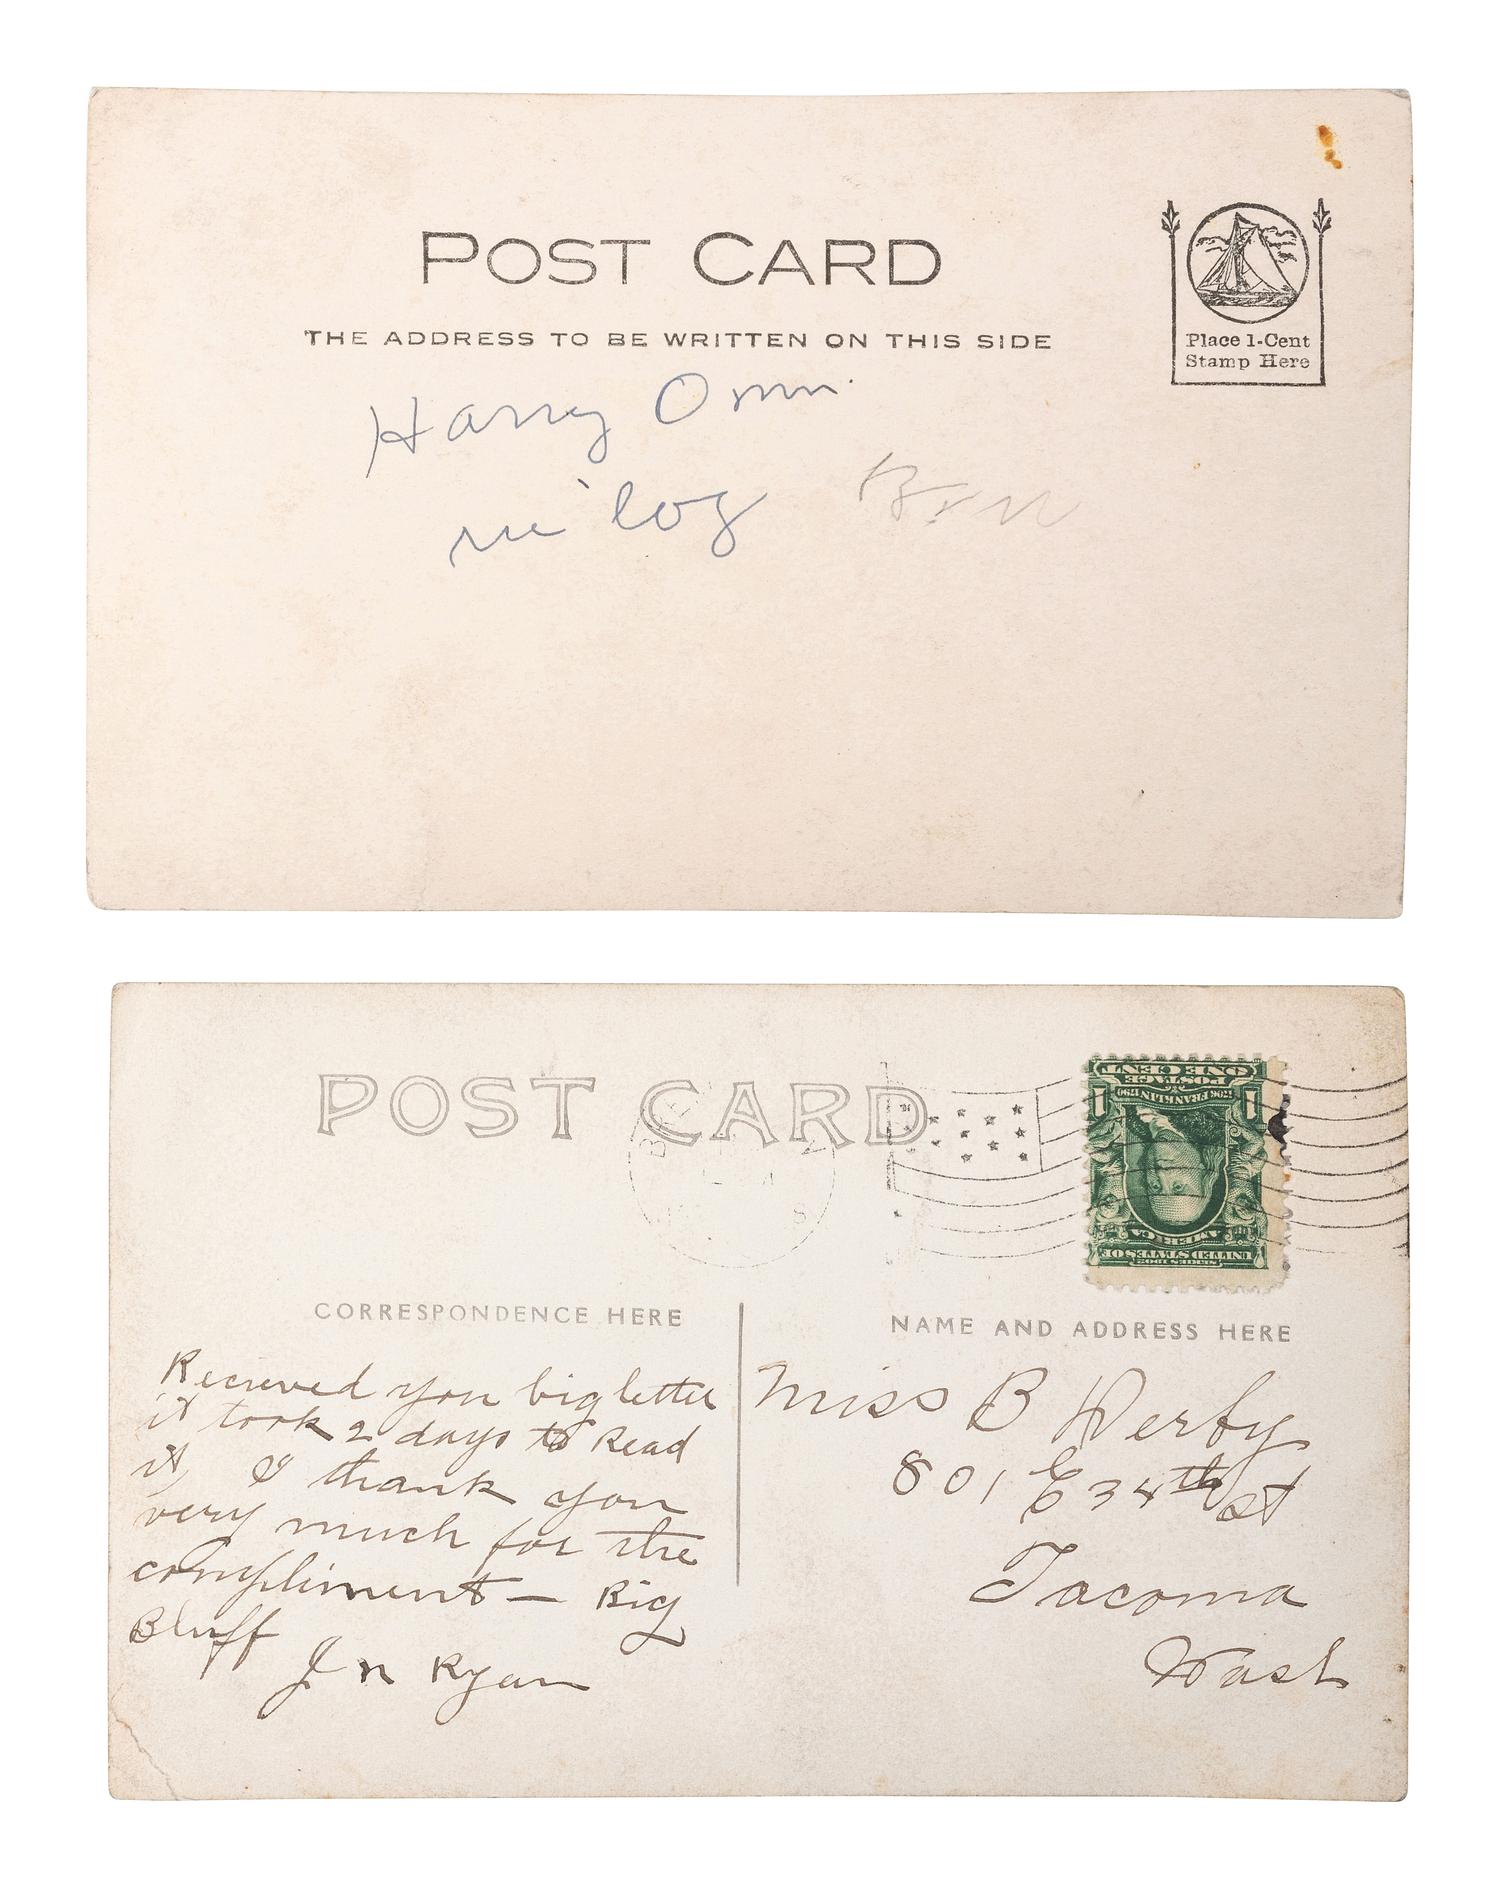 POST CARD
THE ADDRESS TO BE WRITTEN ON THIS SIDE
Place 1-Cent
Stamp Here
Harry
POST CARD
ONE CENT
POSTAGE
1706 FRANKLIN 1790
1 1
AMERICA
UNITED STATES OF
SERIES 1902
CORRESPONDENCE HERE
Recieved your big letter
it took 2 days to Read
it, I thank you
very much for the
compliment — Big
Bluff
J N Ryan
NAME AND ADDRESS HERE
Miss B Derby
801 E 34th st
Tacoma
Wash